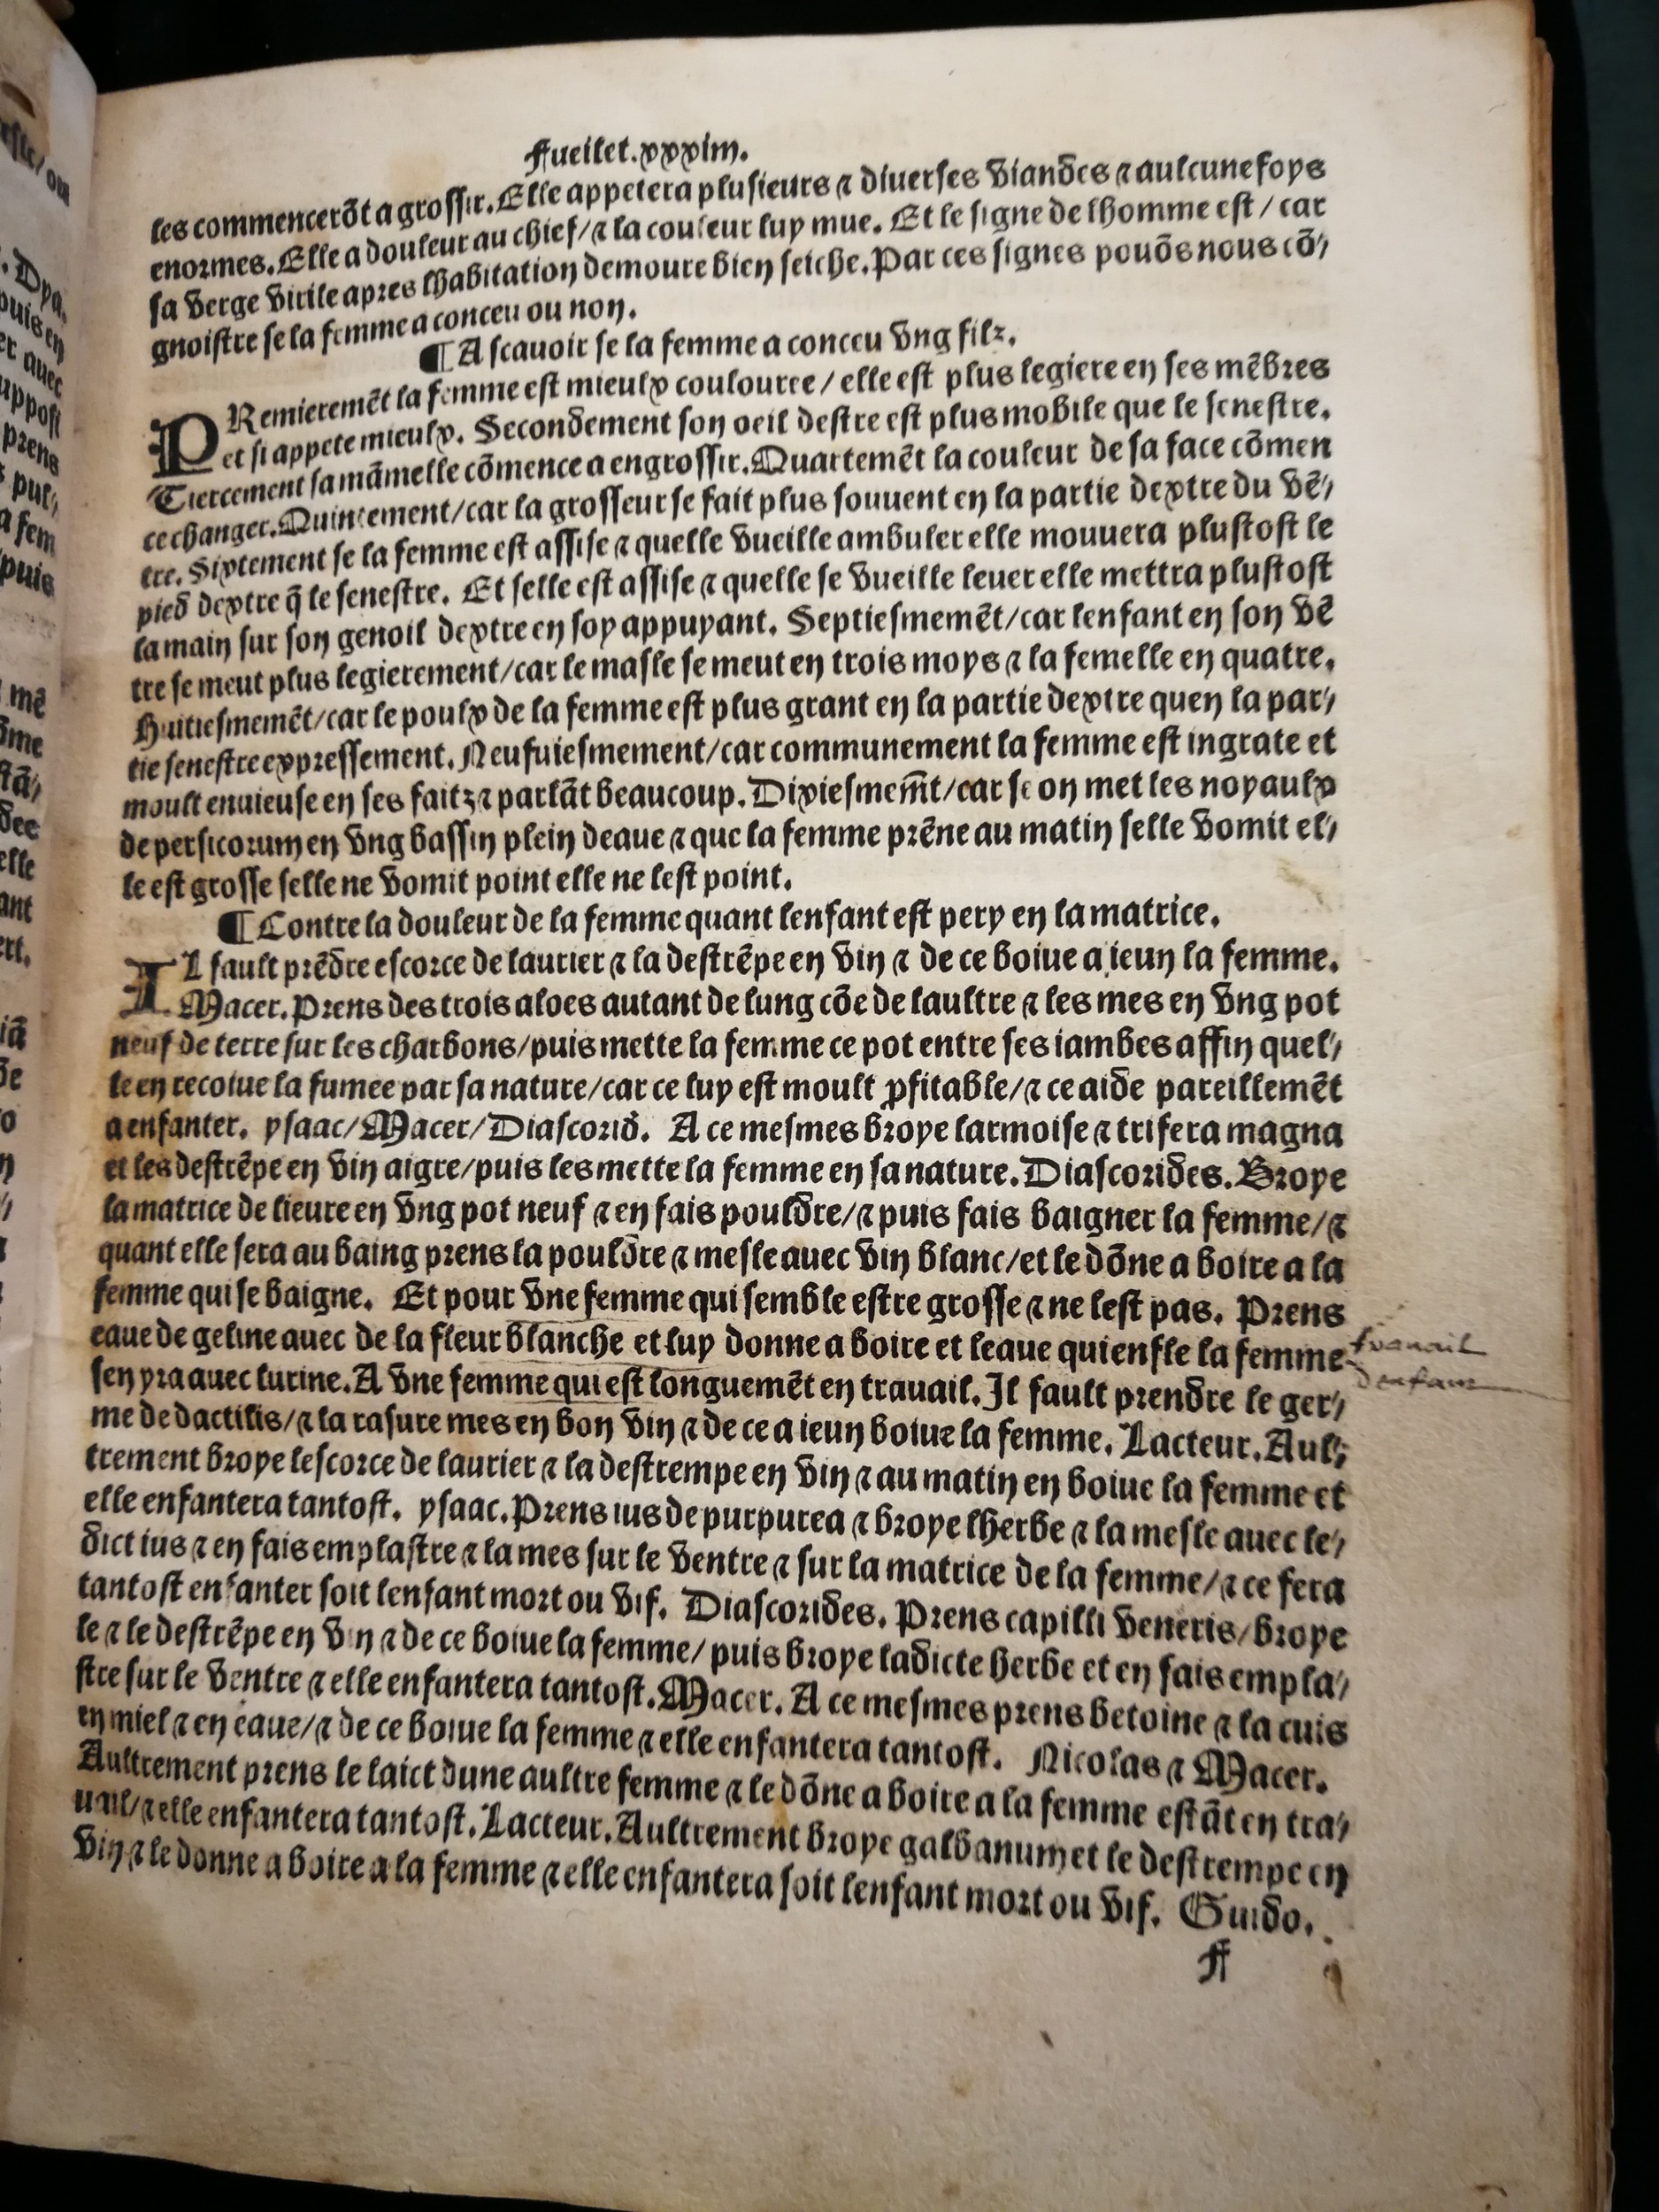 Fueillet.xxxiiii.
les commencerõt a grossir. Elle appetera plusieurs ⁊ diuerses viandes ⁊ aulcunefoys
enormes. Elle a douleur au chief/⁊ la couleur luy mue. Et le signe de lhomme est/car
sa verge virile apres lhabitation demoure bien seiche. Par ces signes pouõs nous cõ⸗
gnoistre se la femme a conceu ou non.
¶ A scauoir se la femme a conceu vng filz.
PRemieremẽt la femme est mieulx coulouree/elle est plus legiere en ses mẽbres
et si appete mieulx. Secondement son oeil destre est plus mobile que le senestre.
Tiercement sa mãmelle cõmence a engrossir. Quartemẽt la couleur de sa face cõmen
ce changer. Quintement/car la grosseur se fait plus souuent en la partie dextre du vẽ⸗
tre. Sixtement se la femme est assise ⁊ quelle vueille ambuler elle mouuera plustost le
pied dextre q̃ le senestre. Et selle est assise ⁊ quelle se vueille leuer elle mettra plustost
la main sur son genoil dextre en soy appuyant. Septiesmemẽt/car lenfant en son vẽ
tre se meut plus legierement/car le masle se meut en trois moys ⁊ la femelle en quatre.
Huitiesmemẽt/car le poulx de la femme est plus grant en la partie dextre quen la par⸗
tie senestre expressement. Neufuiesmement/car communement la femme est ingrate et
moult enuieuse en ses faitz ⁊ parlãt beaucoup. Dixiesmem̃t/car se on met les noyaulx
de persicorum en vng bassin plein deaue ⁊ que la femme prẽne au matin selle vomit el⸗
le est grosse selle ne vomit point elle ne lest point.
¶ Contre la douleur de la femme quant lenfant est pery en la matrice.
IL fault prẽdre escorce de laurier ⁊ la destrẽpe en vin ⁊ de ce boiue a ieun la femme.
Macer. Prens des trois aloes autant de lung cõe de laultre ⁊ les mes en vng pot
neuf de terre sur les charbons/puis mette la femme ce pot entre ses iambes affin quel⸗
le en recoiue la fumee par sa nature/car ce luy est moult ꝓfitable/⁊ ce aide pareillemẽt
a enfanter. ysaac/Macer/Diascorid̉. A ce mesmes broye larmoise ⁊ trifera magna
et les destrẽpe en vin aigre/puis les mette la femme en sa nature. Diascorides. Broye
la matrice de lieure en vng pot neuf ⁊ en fais pouldre/⁊ puis fais baigner la femme/⁊
quant elle sera au baing prens la pouldre ⁊ mesle auec vin blanc/et le dõne a boire a la
femme qui se baigne. Et pour vne femme qui semble estre grosse ⁊ ne lest pas. Prens
eaue de geline auec de la fleur blanche et luy donne a boire et leaue qui enfle la femme
sen yra auec lurine. A vne femme qui est longuemẽt en trauail. Il fault prendre le ger⸗
me de dactilis/⁊ la rasure mes en bon vin ⁊ de ce a ieun boiue la femme. Lacteur. Aul⸗
trement broye lescorce de laurier ⁊ la destrempe en vin ⁊ au matin en boiue la femme et
elle enfantera tantost. ysaac. Prens ius de purpurea ⁊ broye lherbe ⁊ la mesle auec le⸗
dict ius ⁊ en fais emplastre ⁊ la mes sur le ventre ⁊ sur la matrice de la femme/⁊ ce fera
tantost enfanter soit lenfant mort ou vif. Diascorides. Prens capilli veneris/broye
le ⁊ le destrẽpe en vin ⁊ de ce boiue la femme/puis broye ladicte herbe et en fais empla⸗
stre sur le ventre ⁊ elle enfantera tantost. Macer. A ce mesmes prens betoine ⁊ la cuis
en miel ⁊ en eaue/⁊ de ce boiue la femme ⁊ elle enfantera tantost. Nicolas ⁊ Macer.
Aultrement prens le laict dune aultre femme ⁊ le dõne a boire a la femme estãt en tra⸗
uail/⁊ elle enfantera tantost. Lacteur. Aultrement broye galbanum et le destrempe en
vin ⁊ le donne a boire a la femme ⁊ elle enfantera soit lenfant mort ou vif. Guido.
F
trauail
denfant